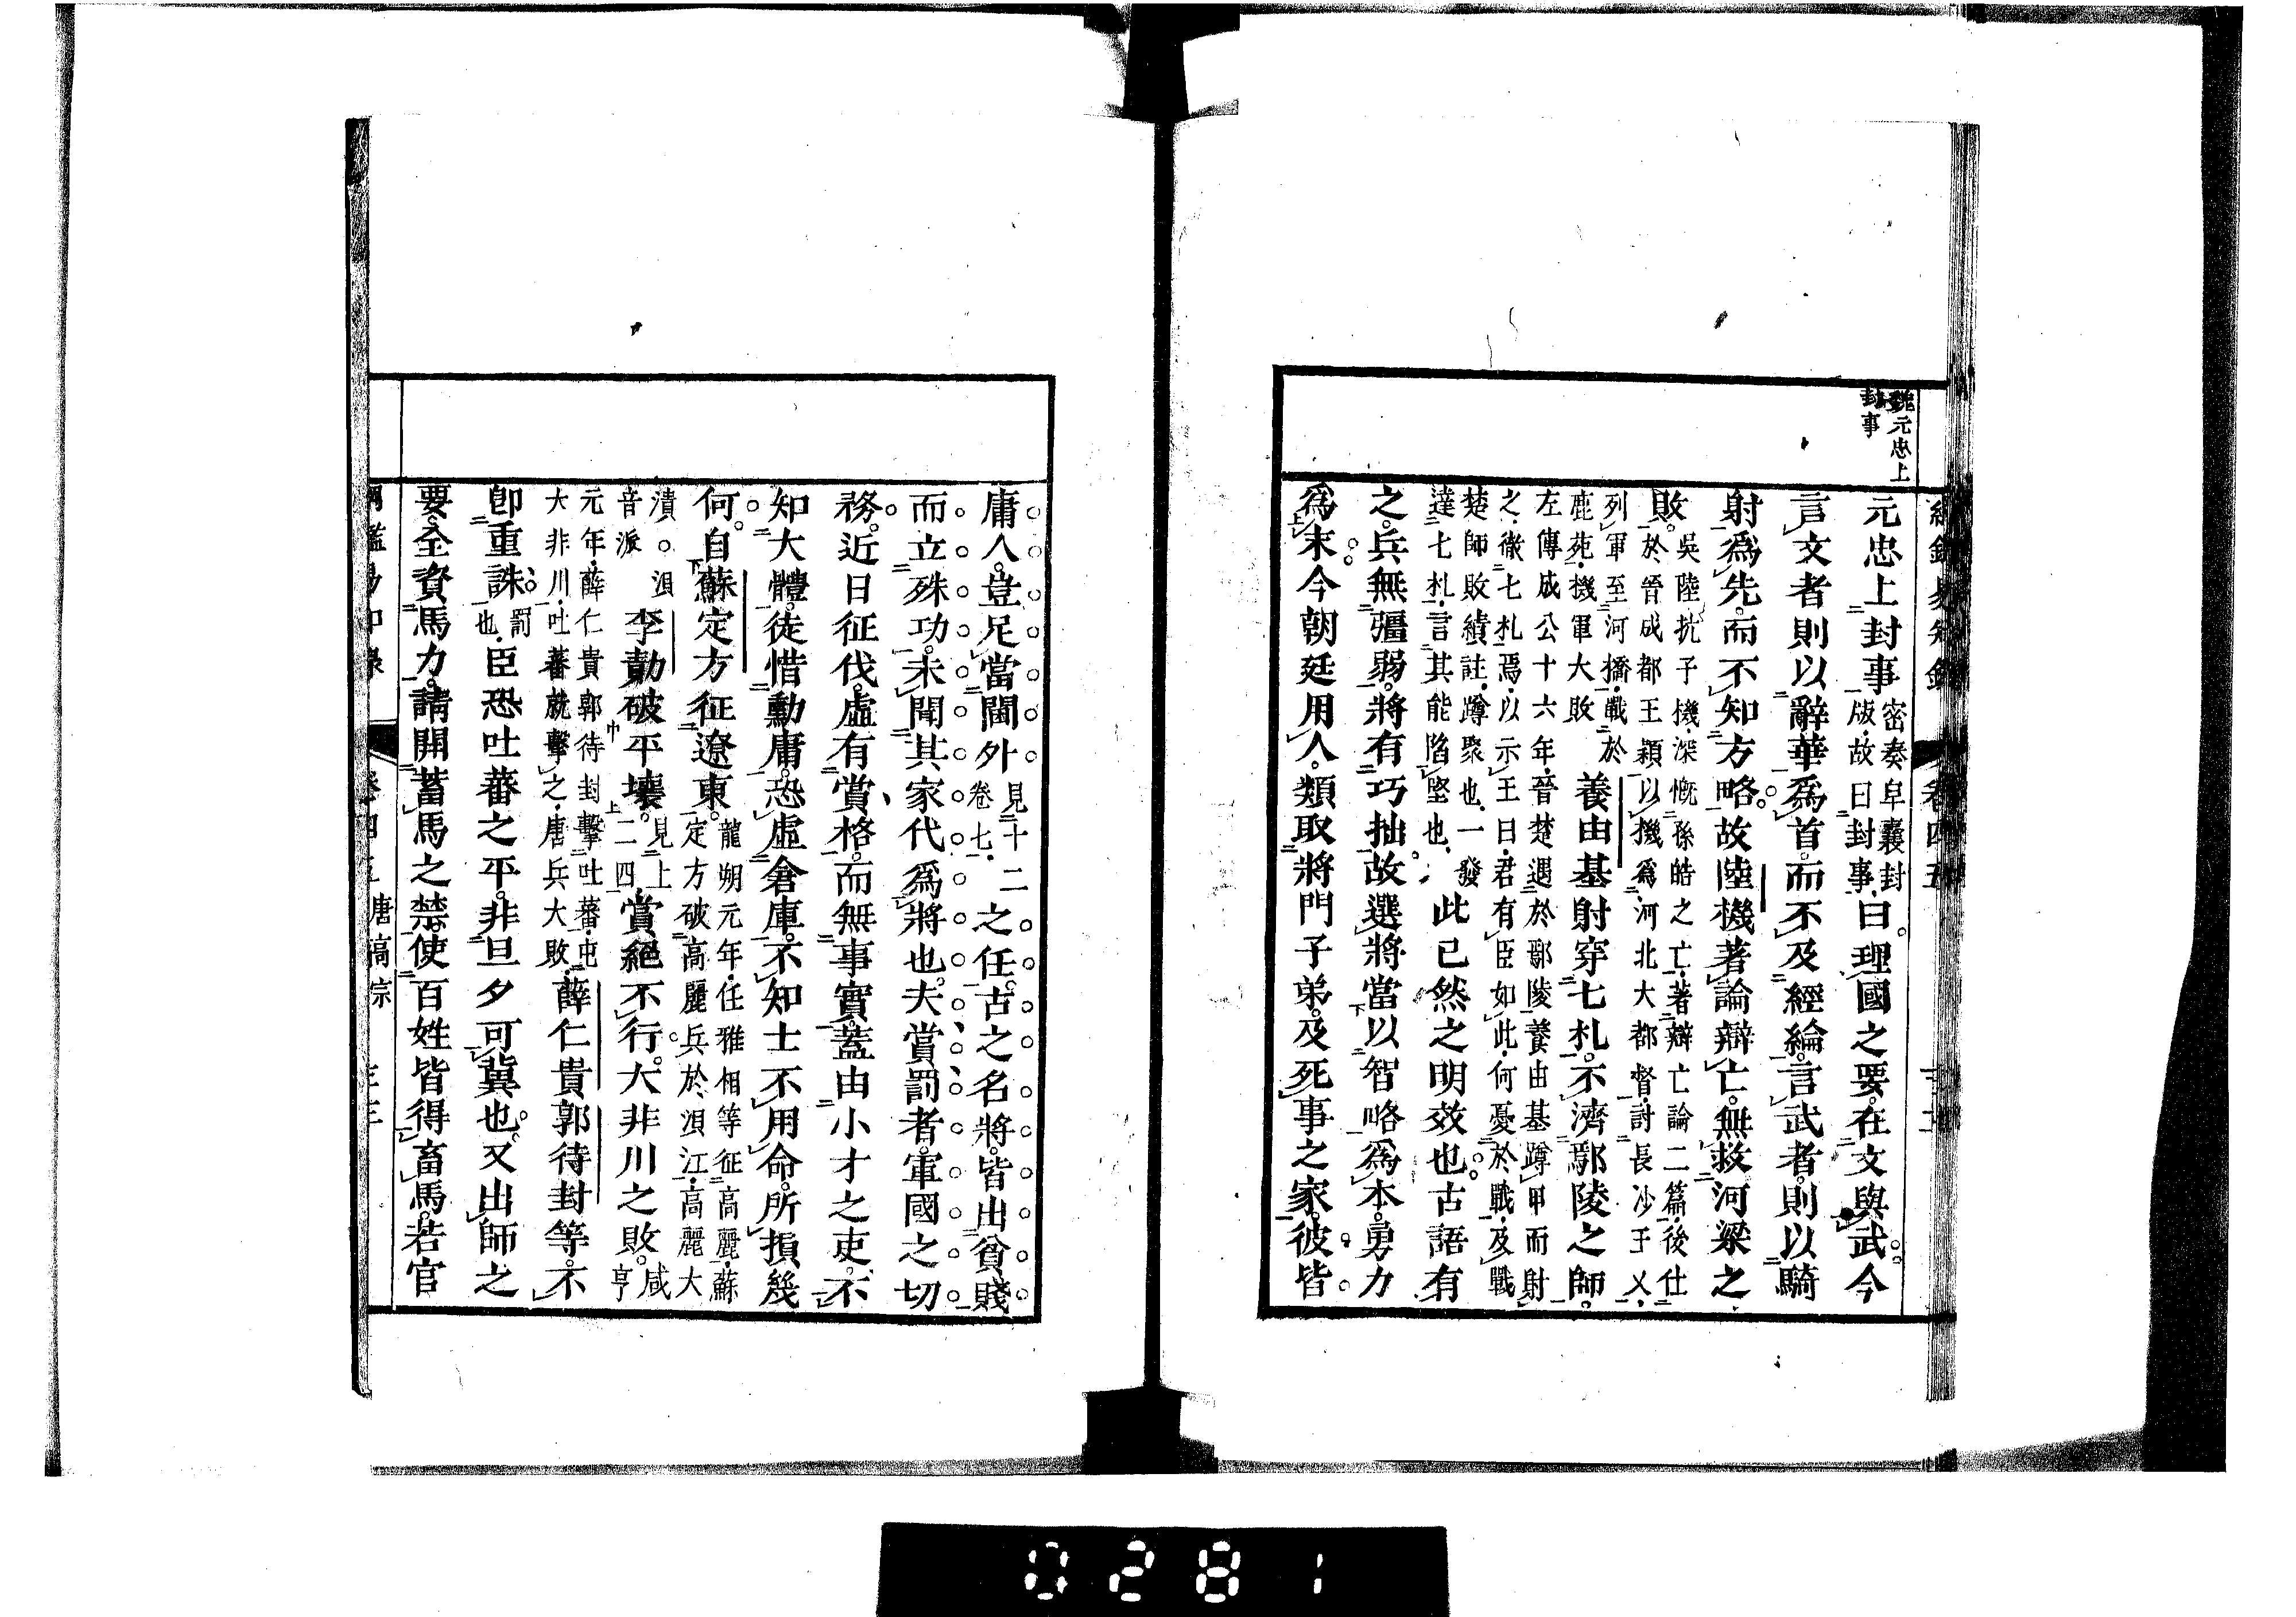 魏元忠上
封事
綱鑑易知錄 卷四五
元忠上封事密奏皁囊封
版故曰封事曰理國之要在文與武今
言文者則以辭華爲首而不及經綸言武者則以騎
射爲先而不知方略故陸機著論辯亡無救河梁之
敗吳陸抗子機深慨孫皓之亡著辯亡論二篇後仕
於晉成都王穎以機爲河北大都督討長沙王乂
列軍至河橋戰於
鹿苑機軍大敗養由基射穿七札不濟鄢陵之師
左傳成公十六年晉楚遇於鄢陵養由基蹲甲而射
之徹七札焉以示王曰君有臣如此何憂於戰及戰
楚師敗績註蹲聚也一發
達七札言其能陷堅也此已然之明效也古語有
之兵無彊弱將有巧拙故選將當以智略爲本勇力
爲末今朝廷用人類取將門子弟及死事之家彼皆
庸人豈足當閫外見十二
卷七之任古之名將皆出貧賤
而立殊功未聞其家代爲將也夫賞罰者軍國之切
務近日征伐虛有賞格而無事實蓋由小才之吏不
知大體徒惜勳庸恐虛倉庫不知士不用命所損幾
何自蘇定方征遼東龍朔元年任雅相等征高麗蘇
定方破高麗兵於浿江高麗大
潰浿
音派李勣破平壤見上
二四賞絕不行大非川之敗咸
亨
元年薛仁貴郭待封擊吐蕃屯
大非川吐蕃就擊之唐兵大敗薛仁貴郭待封等不
卽重誅罰
也臣恐吐蕃之平非旦夕可冀也又出師之
要全資馬力請開蓄馬之禁使百姓皆得畜馬若官
綱鑑易知錄 卷四五 唐高宗
0281